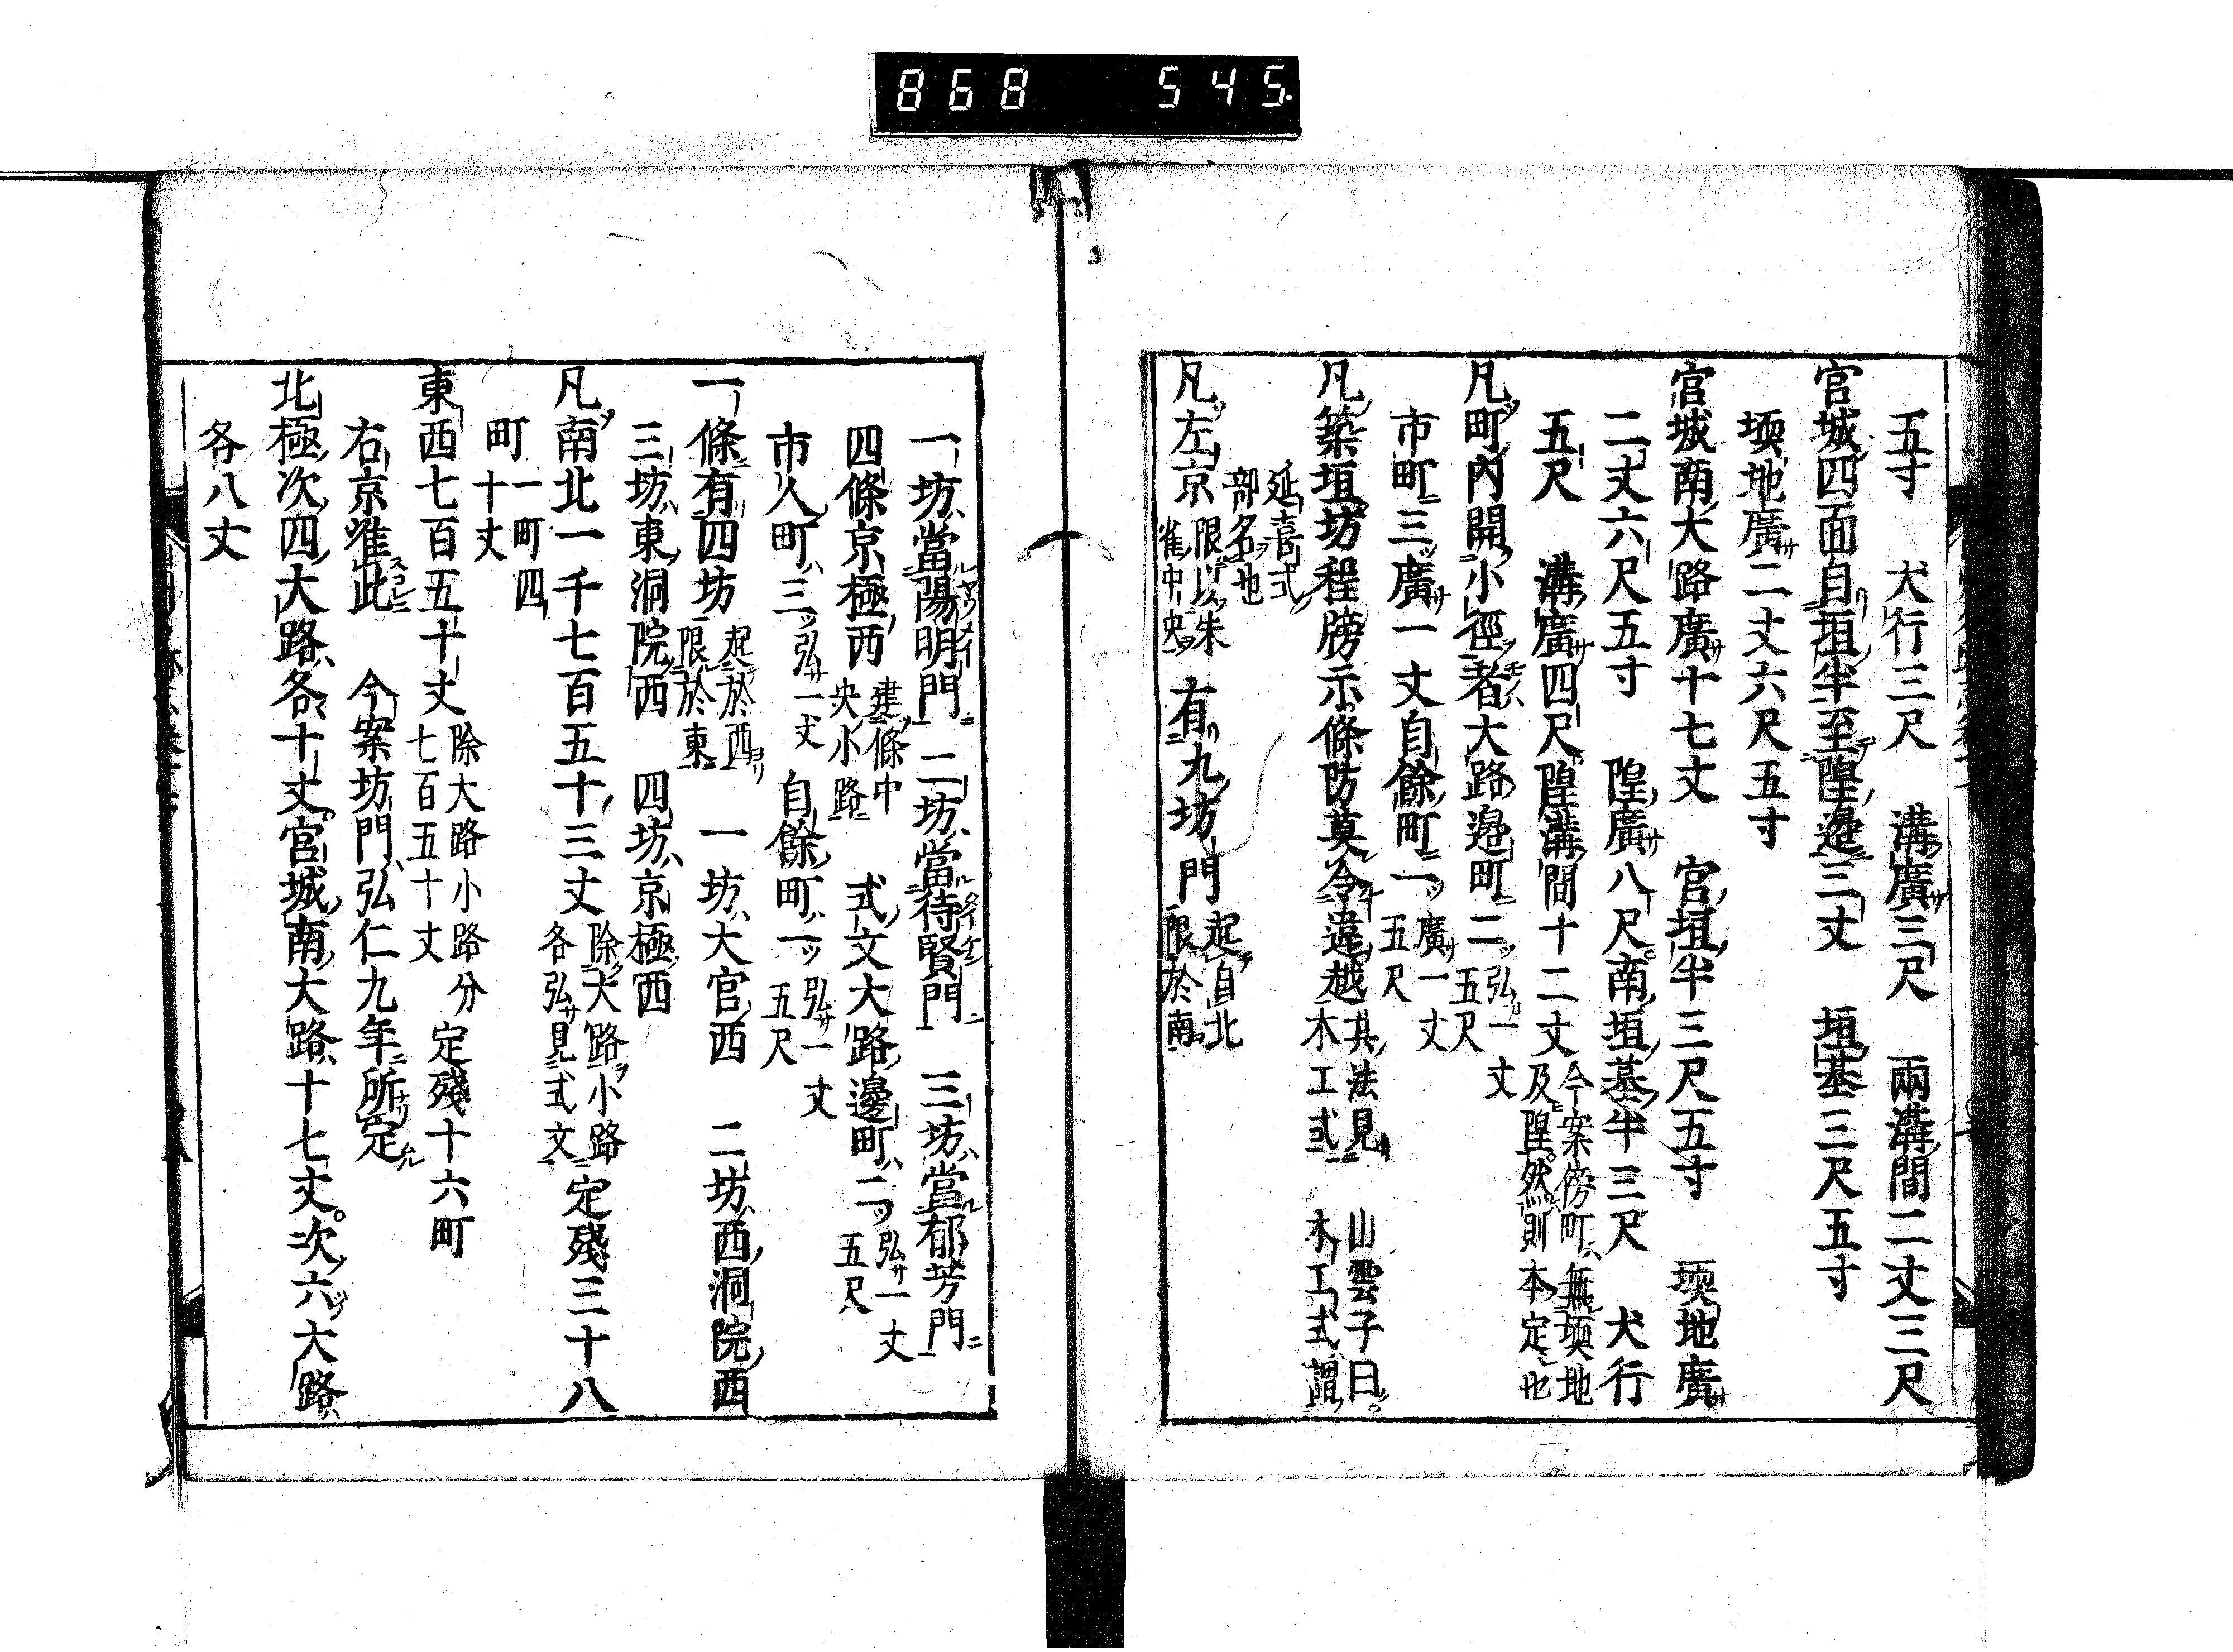 868 545.
五寸 犬行三尺 溝廣三尺 兩溝間二丈三尺
官城四面自垣半至隍邊三丈 垣基三尺五寸
堧地廣二丈六尺五寸
宮城南大路廣十七丈 宮垣半三尺五寸 堧地廣
二丈六尺五寸 隍廣八尺南垣基半三尺 犬行
五尺 溝廣四尺隍溝間十二丈
今案傍町無堧地
及隍然則本定也
凡町內開小徑者大路邊町二
弘一丈
五尺
市町三廣一丈自餘町一
廣一丈
五尺
凡築垣坊程牓示條防莫令違越
其法見 山雲子曰
木工式 木工式謂
延喜式
部名也
凡左京
限以朱
雀中央
有九坊門
起自北
限於南
一坊當陽明門 二坊當待賢門 三坊當郁芳門
四條京極西
建條中
央小路
式文大路邊町二
弘一丈
五尺
市人町三
弘一丈
自餘町一
弘一丈
五尺
一條有四坊
起於西
限於東
一坊大宮西 二坊西洞院西
三坊東洞院西 四坊京極西
凡南北一千七百五十三丈
除大路小路
各弘見式文
定殘三十八
町
一町四
十丈
東西七百五十丈
除大路小路分
七百五十丈
定殘十六町
右京准此 今案坊門弘仁九年所定
北極次四大路各十丈宮城南大路十七丈次六大路
各八丈